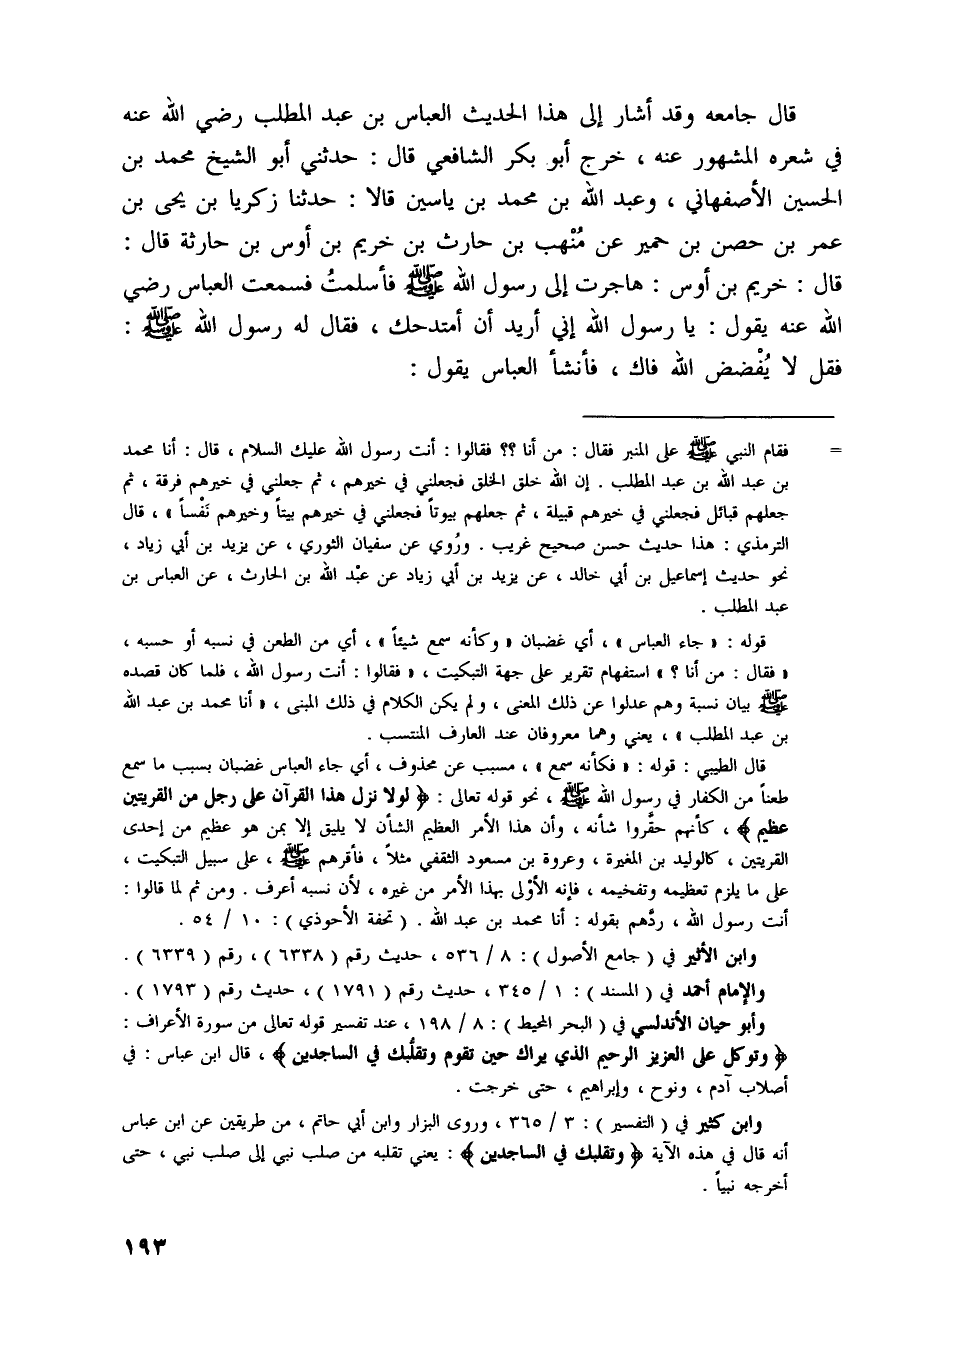 قال جامعه وقد أشار إلى هذا الحديث العباس بن عبد المطلب رضي الله عنه
في شعره المشهور عنه ، خرج أبو بكر الشافعي قال : حدثني أبو الشيخ محمد بن
الحسين الأصفهاني ، وعبد الله بن محمد بن ياسين قالا : حدثنا زكريا بن يحى بن
عمر بن حصن بن حمير عن مُنْهب بن حارث بن خريم بن أوس بن حارثة قال :
قال : خريم بن أوس : هاجرت إلى رسول الله ﷺ فأسلمتُ فسمعت العباس رضي
الله عنه يقول : يا رسول الله إني أريد أن أمتدحك ، فقال له رسول الله ﷺ :
فقل لا يُفْضض الله فاك ، فأنشأ العباس يقول :
= فقام النبي ﷺ على المنبر فقال : من أنا ؟؟ فقالوا : أنت رسول الله عليك السلام ، قال : أنا محمد
بن عبد الله بن عبد المطلب . إن الله خلق الخلق فجعلني في خيرهم ، ثم جعلني في خيرهم فرقة ، ثم
جعلهم قبائل فجعلني في خيرهم قبيلة ، ثم جعلهم بيوتاً فجعلني في خيرهم بيتاً وخيرهم نَفْساً » ، قال
الترمذي : هذا حديث حسن صحيح غريب . ورُوي عن سفيان الثوري ، عن يزيد بن أبي زياد ،
نحو حديث إسماعيل بن أبي خالد ، عن يزيد بن أبي زياد عن عبْد الله بن الحارث ، عن العباس بن
عبد المطلب .
قوله : « جاء العباس » ، أي غضبان « وكأنه سمع شيئاً » ، أي من الطعن في نسبه أو حسبه ،
« فقال : من أنا ؟ » استفهام تقرير على جهة التبكيت ، « فقالوا : أنت رسول الله ، فلما كان قصده
ﷺ بيان نسبة وهم عدلوا عن ذلك المعنى ، ولم يكن الكلام في ذلك المبنى ، « أنا محمد بن عبد الله
بن عبد المطلب » ، يعني وهما معروفان عند العارف المنتسب .
قال الطيبي : قوله : « فكأنه سمع » ، مسبب عن محذوف ، أي جاء العباس غضبان بسبب ما سمع
طعناً من الكفار في رسول الله ﷺ ، نحو قوله تعالى : ﴿ لولا نزل هذا القرآن على رجل من القريتين
عظيم ﴾ ، كأنهم حقَّروا شأنه ، وأن هذا الأمر العظيم الشأن لا يليق إلا بمن هو عظيم من إحدى
القريتين ، كالوليد بن المغيرة ، وعروة بن مسعود الثقفي مثلاً ، فأقرهم ﷺ ، على سبيل التبكيت ،
على ما يلزم تعظيمه وتفخيمه ، فإنه الأوْلى بهذا الأمر من غيره ، لأن نسبه أعرف . ومن ثم لما قالوا :
أنت رسول الله ، ردَّهم بقوله : أنا محمد بن عبد الله . ( تحفة الأحوذي ) : ١٠ / ٥٤ .
وابن الأثير في ( جامع الأصول ) : ٨ / ٥٣٦ ، حديث رقم ( ٦٣٣٨ ) ، رقم ( ٦٣٣٩ ) .
والإمام أحمد في ( المسند ) : ١ / ٣٤٥ ، حديث رقم ( ١٧٩١ ) ، حديث رقم ( ١٧٩٣ ) .
وأبو حيان الأندلسي في ( البحر المحيط ) : ٨ / ١٩٨ ، عند تفسير قوله تعالى من سورة الأعراف :
﴿ وتوكل على العزيز الرحيم الذي يراك حين تقوم وتقلُّبك في الساجدين ﴾ ، قال ابن عباس : في
أصلاب آدم ، ونوح ، وإبراهيم ، حتى خرجت .
وابن كثير في ( التفسير ) : ٣ / ٣٦٥ ، وروى البزار وابن أبي حاتم ، من طريقين عن ابن عباس
أنه قال في هذه الآية ﴿ وتقلبك في الساجدين ﴾ : يعني تقلبه من صلب نبي إلى صلب نبي ، حتى
أخرجه نبياً .
١٩٣